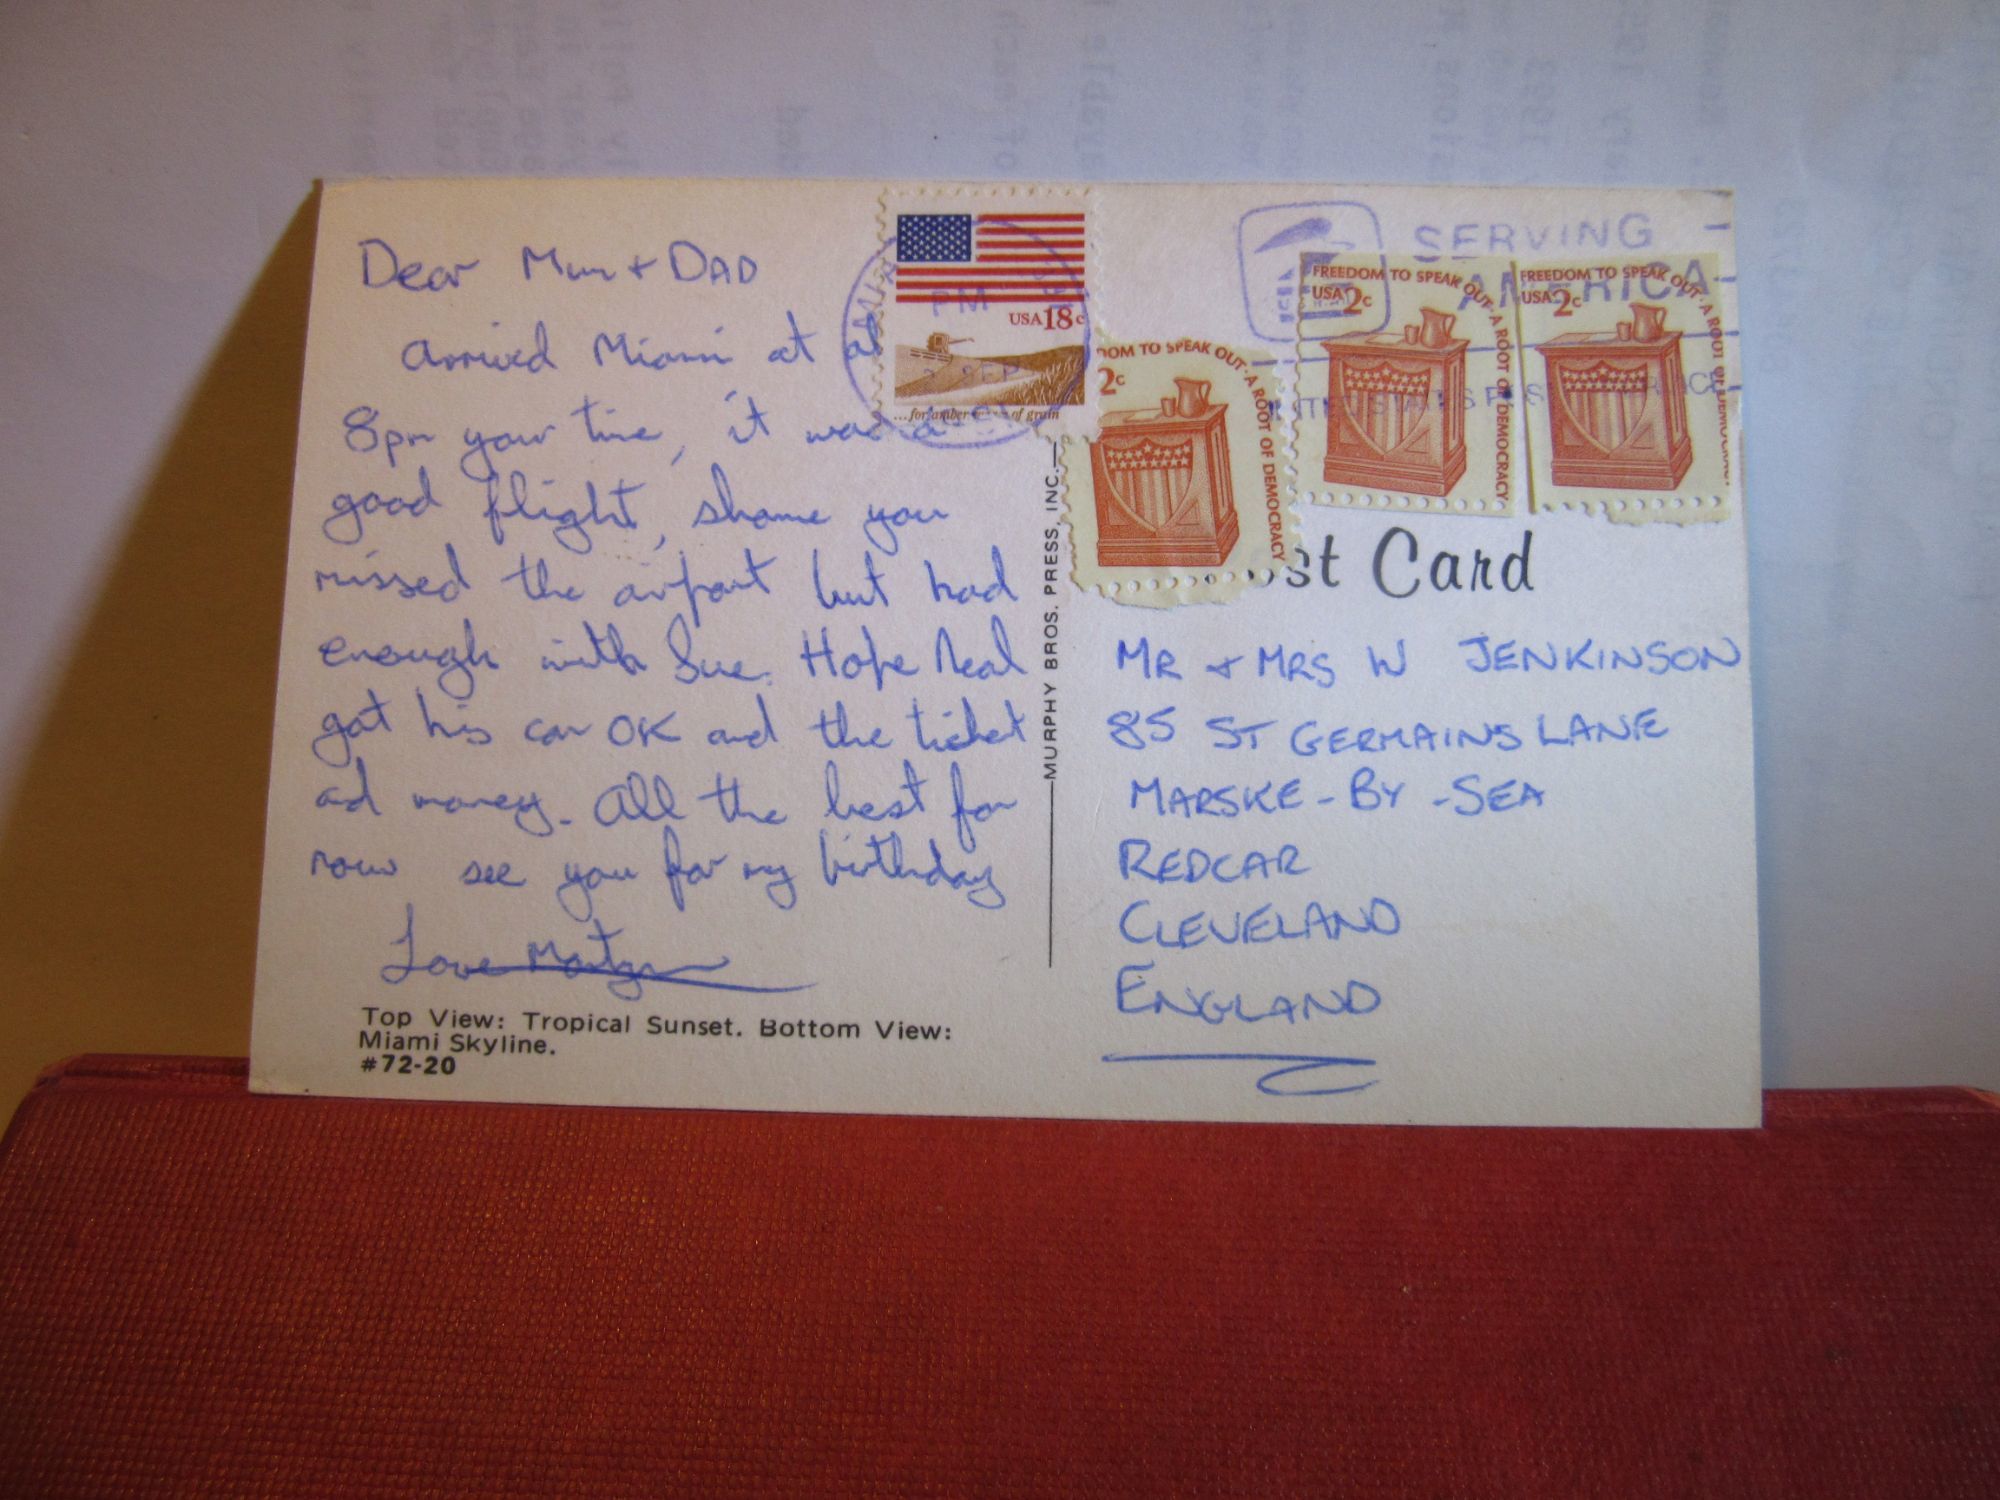 Dear Mum + DAD
arrived Miami at
8pm your time, it was a
good flight, shame you
missed the airport but had
enough with Sue. Hope Neal
got his car OK and the ticket
and money. All the best for
now see you for my birthday
Love Martyn
Top View: Tropical Sunset. Bottom View:
Miami Skyline.
#72-20
MURPHY BROS. PRESS, INC.
USA 18c
...for amber of grain
PM
SEP
SERVING
AMERICA
OM TO SPEAK OUT · A ROOT OF DEMOCRACY
2c
FREEDOM TO SPEAK OUT · A ROOT OF DEMOCRACY
USA 2c
FREEDOM TO SPEAK OUT · A ROOT OF DEMOCRACY
USA 2c
st Card
MR + MRS W JENKINSON
85 ST GERMAINS LANE
MARSKE - BY - SEA
REDCAR
CLEVELAND
ENGLAND